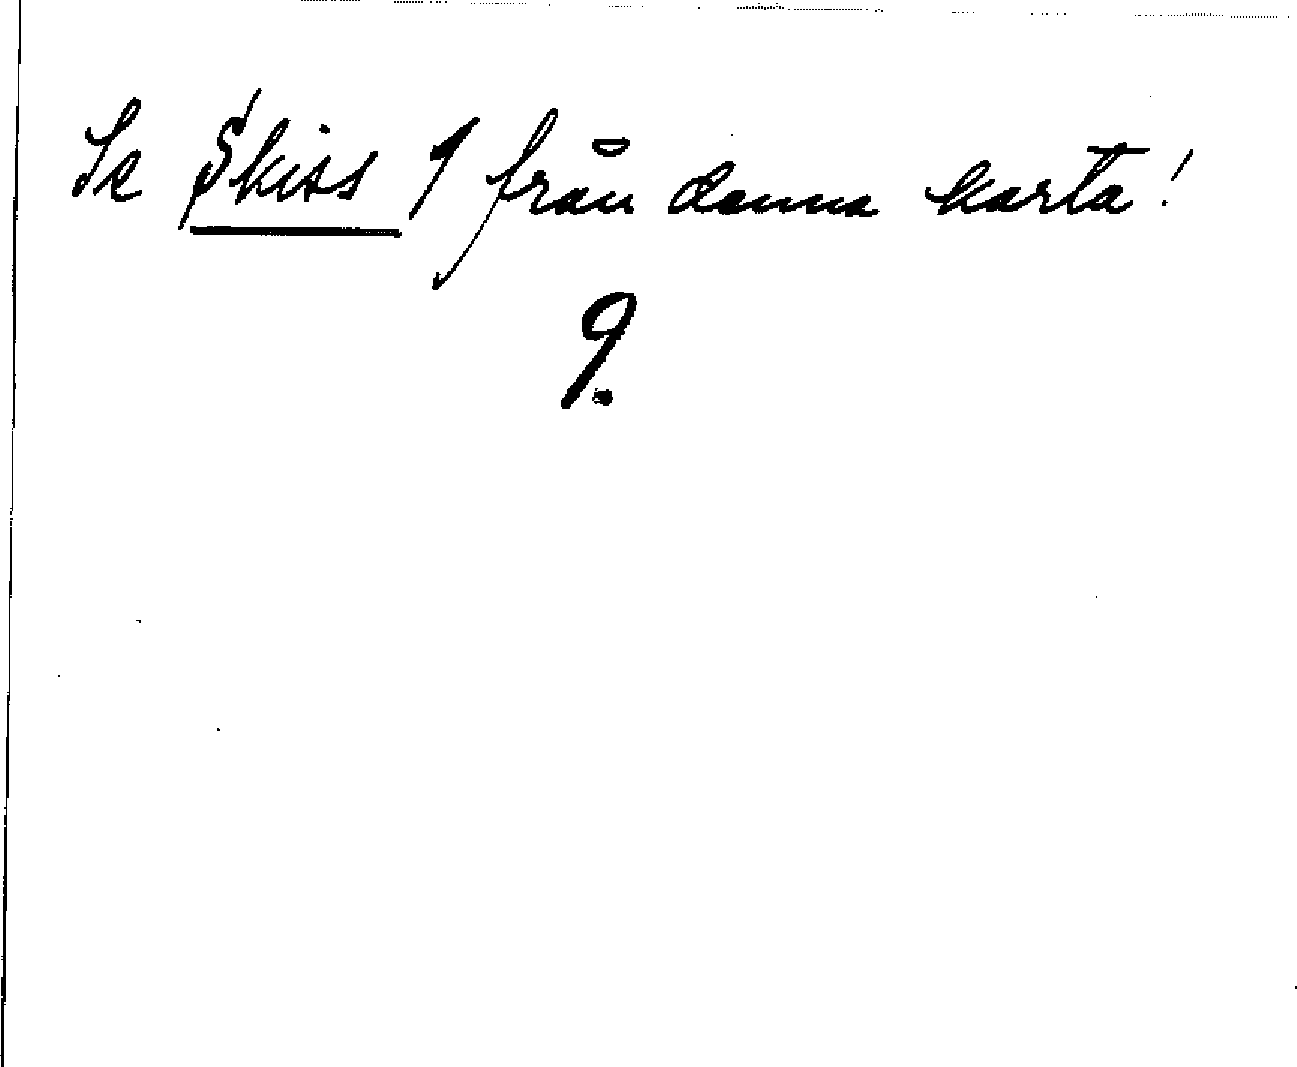 Se Skiss 1 från denna karta!
9.